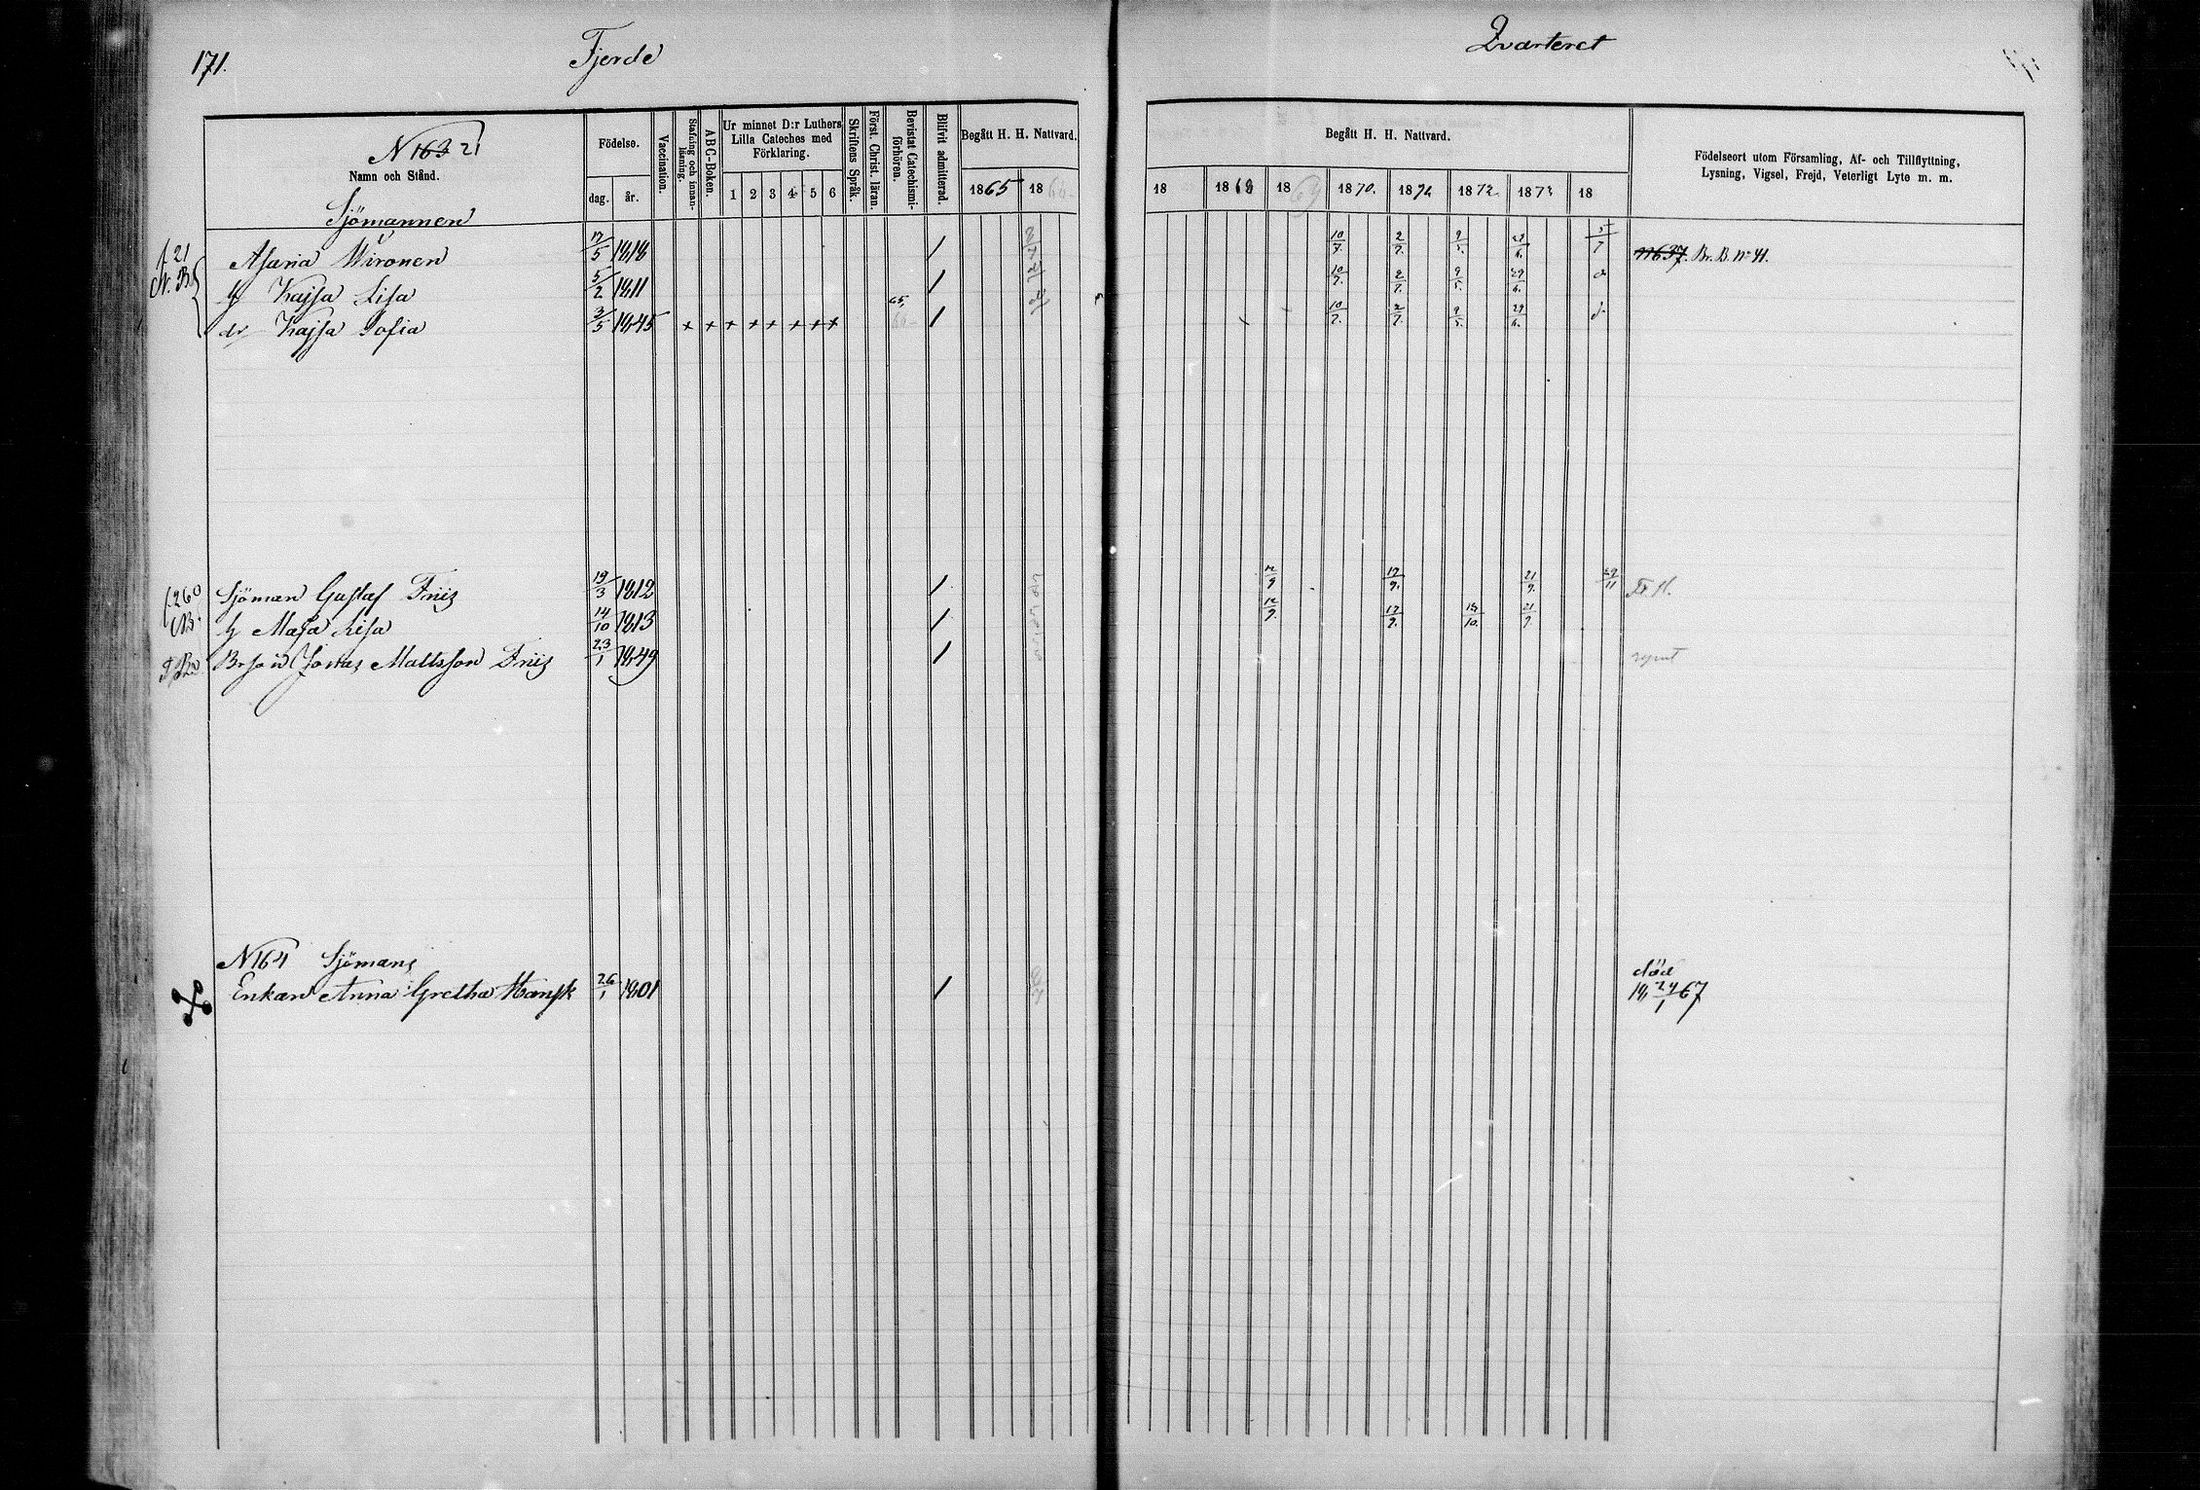 171.
Fjerde
Qvarteret
N 163 21
Namn och Stånd.
Födelse.
dag. år.
Vaccination.
Stafning och innan-läsning.
ABC-Boken.
Ur minnet D:r Luthers Lilla Cateches med Förklaring.
1 2 3 4 5 6
Skriftens Språk.
Först. Christ. läran.
Bevistat Catechismi-förhören.
Blifvit admitterad.
Begått H. H. Nattvard.
1865 18
Begått H. H. Nattvard.
18 1868 1869 1870. 1871 1872. 1873 18
Födelseort utom Församling, Af- och Tillflyttning,
Lysning, Vigsel, Frejd, Veterligt Lyte m. m.
Sjömannen
f 21 Asaria Wironen 17/5 1818 / 10/7. 2/7. 9/5. 29/6. 5/7 Br. B. No 41.
N. B. h Kajsa Lisa 5/2 1811 / 10/7. 2/7. 9/5. 29/6.
dr Kajsa Sofia 3/5 1845 x x x x x x x x 65 / 10/7. 2/7. 9/5. 29/6.
f 260 Sjöman Gustaf Friis 19/3 1812 / 12/9 17/9. 21/9. 29/11
NB. h Maja Lisa 14/10 1813 / 12/9. 17/9. 13/10. 21/9.
Brson Jonas Mattsson Friis 23/1 1849 / rymt
N 164 Sjömans
Enkan Anna Gretha Hansk 26/1 1801 /
död
18 24/1 67